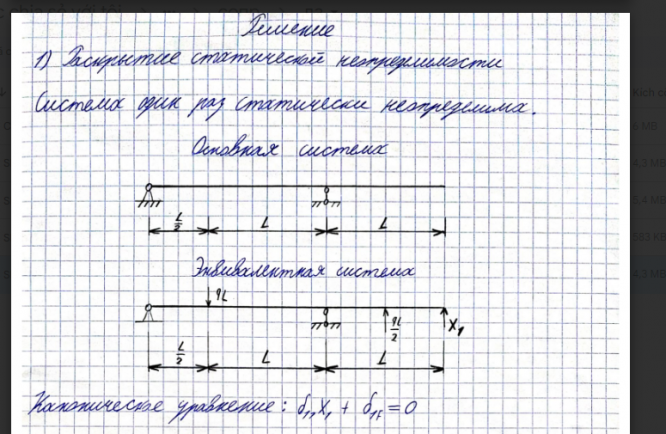 Решение
1) Раскрытие статической неопределимости
Система один раз статически неопределима.
Основная система
L/2 L L
Эквивалентная система
qL
qL/2 X₁
L/2 L L
Каноническое уравнение: δ₁₁X₁ + δ₁F = 0